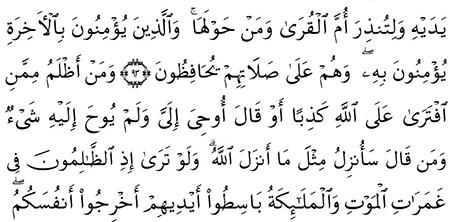 يَدَيْهِ وَلِتُنذِرَ أُمَّ الْقُرَىٰ وَمَنْ حَوْلَهَا ۚ وَالَّذِينَ يُؤْمِنُونَ بِالْآخِرَةِ
يُؤْمِنُونَ بِهِ ۖ وَهُمْ عَلَىٰ صَلَاتِهِمْ يُحَافِظُونَ ﴿٩٣﴾ وَمَنْ أَظْلَمُ مِمَّنِ
افْتَرَىٰ عَلَى اللَّهِ كَذِبًا أَوْ قَالَ أُوحِيَ إِلَيَّ وَلَمْ يُوحَ إِلَيْهِ شَيْءٌ
وَمَن قَالَ سَأُنزِلُ مِثْلَ مَا أَنزَلَ اللَّهُ ۗ وَلَوْ تَرَىٰ إِذِ الظَّالِمُونَ فِي
غَمَرَاتِ الْمَوْتِ وَالْمَلَائِكَةُ بَاسِطُوا أَيْدِيهِمْ أَخْرِجُوا أَنفُسَكُمُ ۖ